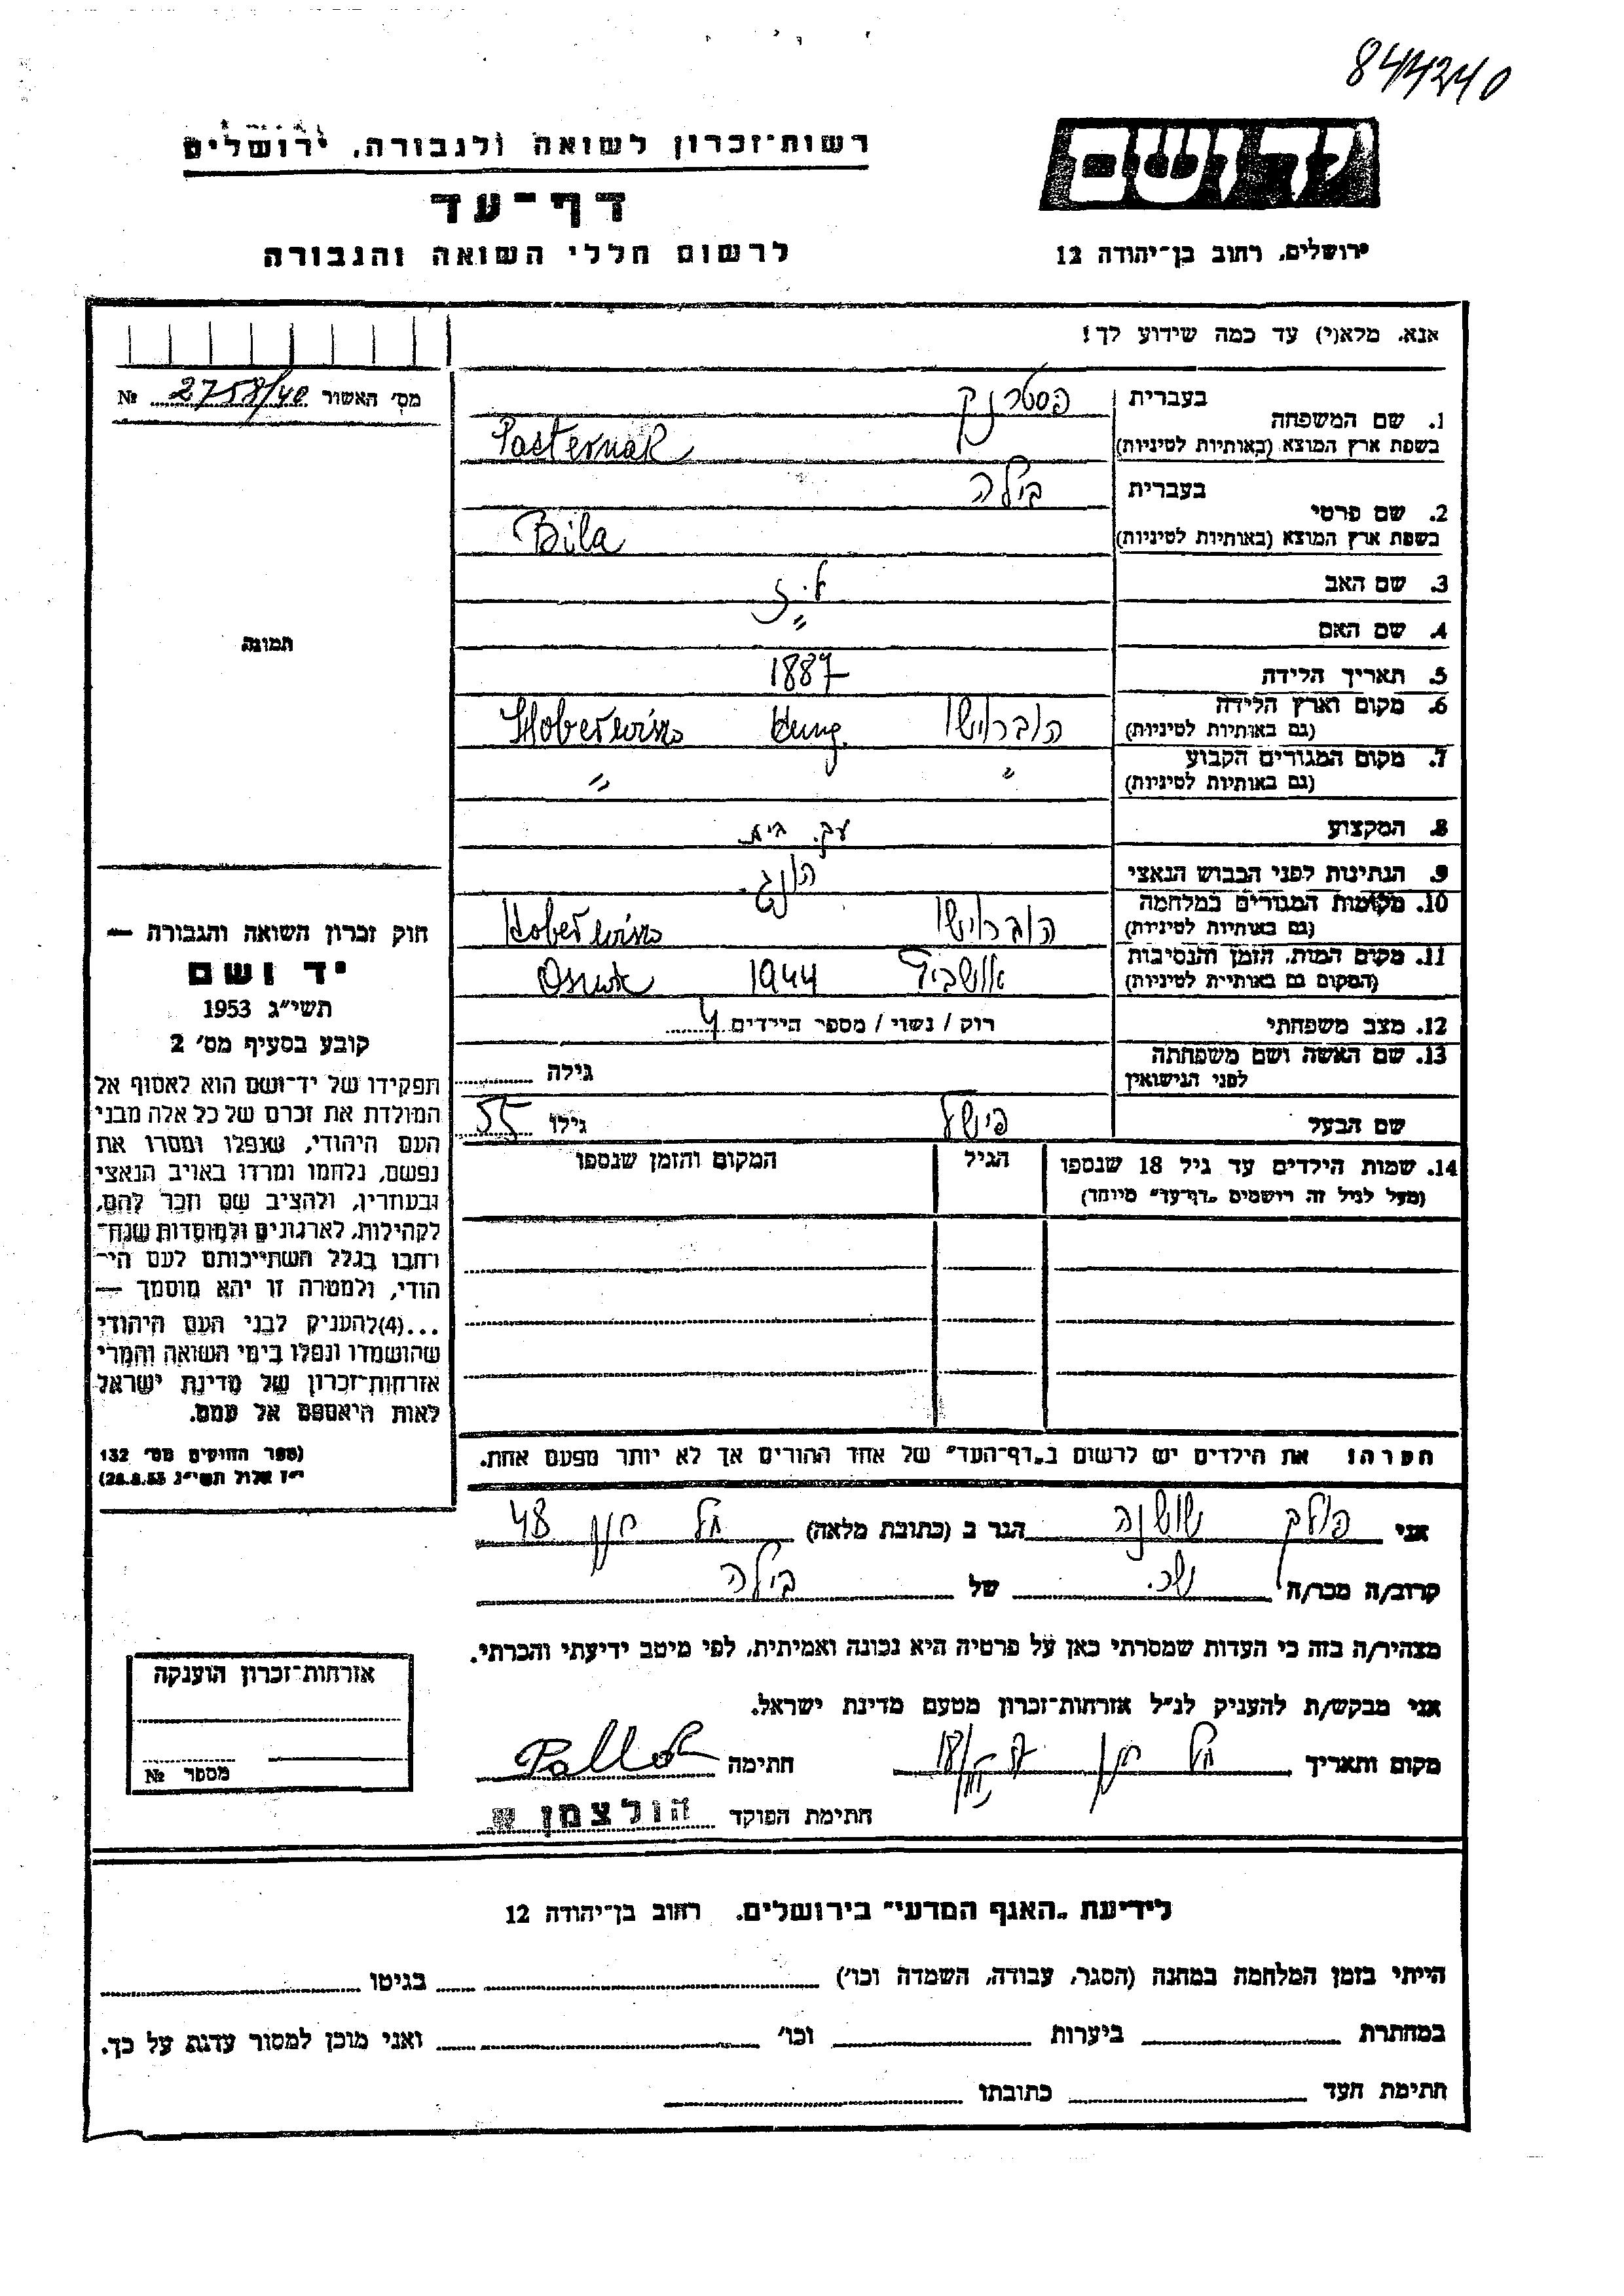 844240
רשות־זכרון לשואה ולגבורה, ירושלים
יד ושם
דף־עד
לרשום חללי השואה והגבורה
ירושלים, רחוב בן־יהודה 12
אנא, מלא(י) עד כמה שידוע לך!
מס׳ האשור 2758/40 №
1. שם המשפחה בעברית פסטרנק
בשפת ארץ המוצא (באותיות לטיניות) Pasternak
2. שם פרטי בעברית בילה
בשפת ארץ המוצא (באותיות לטיניות) Bila
3. שם האב
4. שם האם "
תמונה
5. תאריך הלידה 1887
6. מקום וארץ הלידה
(גם באותיות לטיניות) Hung.
7. מקום המגורים הקבוע " "
(גם באותיות לטיניות)
8. המקצוע עק. בית
9. הנתינות לפני הכבוש הנאצי הונג.
10. מקומות המגורים במלחמה
(גם באותיות לטיניות)
11. מקום המות, הזמן והנסיבות 1944
(המקום גם באותיית לטיניות)
12. מצב משפחתי רוק / נשוי / מספר הילדים 4
13. שם האשה ושם משפחתה
לפני הנישואין גילה
שם הבעל פישל גילו 55
14. שמות הילדים עד גיל 18 שנספו הגיל המקום והזמן שנספו
(מעל לגיל זה רושמים „דף־עד" מיוחד)
חוק זכרון השואה והגבורה —
יד ושם
תשי"ג 1953
קובע בסעיף מס׳ 2
תפקידו של יד־ושם הוא לאסוף אל
המולדת את זכרם של כל אלה מבני
העם היהודי, שנפלו ומסרו את
נפשם, נלחמו ומרדו באויב הנאצי
ובעוזריו, ולהציב שם וזכר להם,
לקהילות, לארגונים ולמוסדות שנח־
רחבו בגלל השתייכותם לעם הי־
הודי, ולמטרה זו יהא מוסמך —
...(4)להעניק לבני העם היהודי
שהושמדו ונפלו בימי השואה והמרי
אזרחות־זכרון של מדינת ישראל
לאות היאספם אל עמם.
(ספר החוקים מס׳ 132
י"ז אלול תשי"ג 28.8.53)
הערה: את הילדים יש לרשום ב„דף־העד" של אחד ההורים אך לא יותר מפעם אחת.
אני פולק שושנה הגר ב (כתובת מלאה) תל חנן 48
קרוב/ה מכר/ה של בילה
מצהיר/ה בזה כי העדות שמסרתי כאן על פרטיה היא נכונה ואמיתית, לפי מיטב ידיעתי והכרתי.
אני מבקש/ת להעניק לנ"ל אזרחות־זכרון מטעם מדינת ישראל.
מקום ותאריך תל חנן חתימה
חתימת הפוקד הולצמן
אזרחות־זכרון הוענקה
מספר №
לידיעת „האגף המדעי" בירושלים, רחוב בן־יהודה 12
הייתי בזמן המלחמה במחנה (הסגר, עבודה, השמדה וכו׳) בגיטו
במחתרת ביערות וכו׳ ואני מוכן למסור עדות על כך.
חתימת העד כתובתו